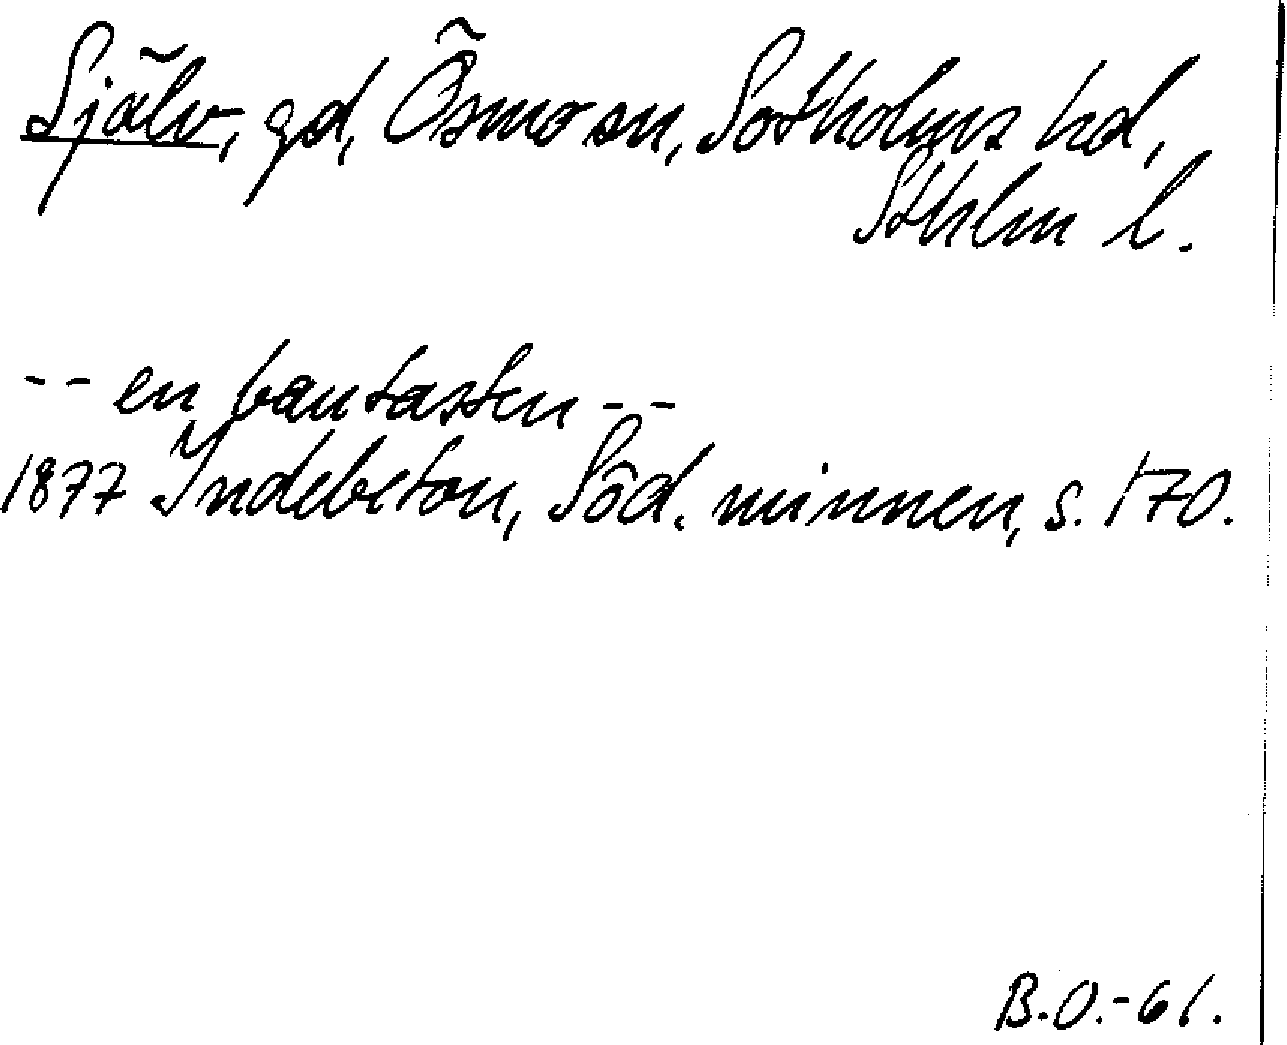 Själv, gd, Ösmo sn, Sotholms hd,
Sthlm l.
-- en bautasten --
1877 Indebetou, Söd. minnen, s. 170.
B.O.-61.